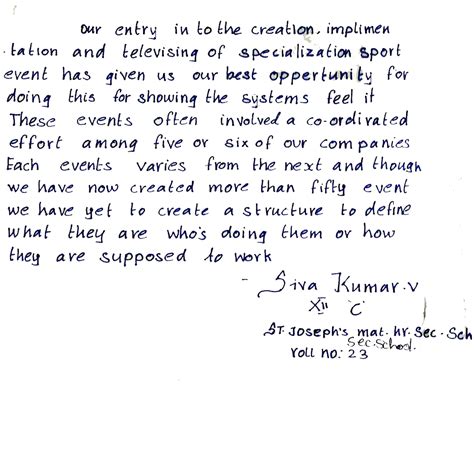 our entry in to the creation, implimen
-tation and televising of specialization sport
event has given us our best oppertunity for
doing this for showing the systems feel it
These events often involved a co-ordivated
effort among five or six of our companies
Each events varies from the next and though
we have now created more than fifty event
we have yet to create a structure to define
what they are who's doing them or how
they are supposed to work
- Siva Kumar.v
XII C
ST. Joseph's mat. hr. Sec. Sch
Sec. School.
roll no: 23